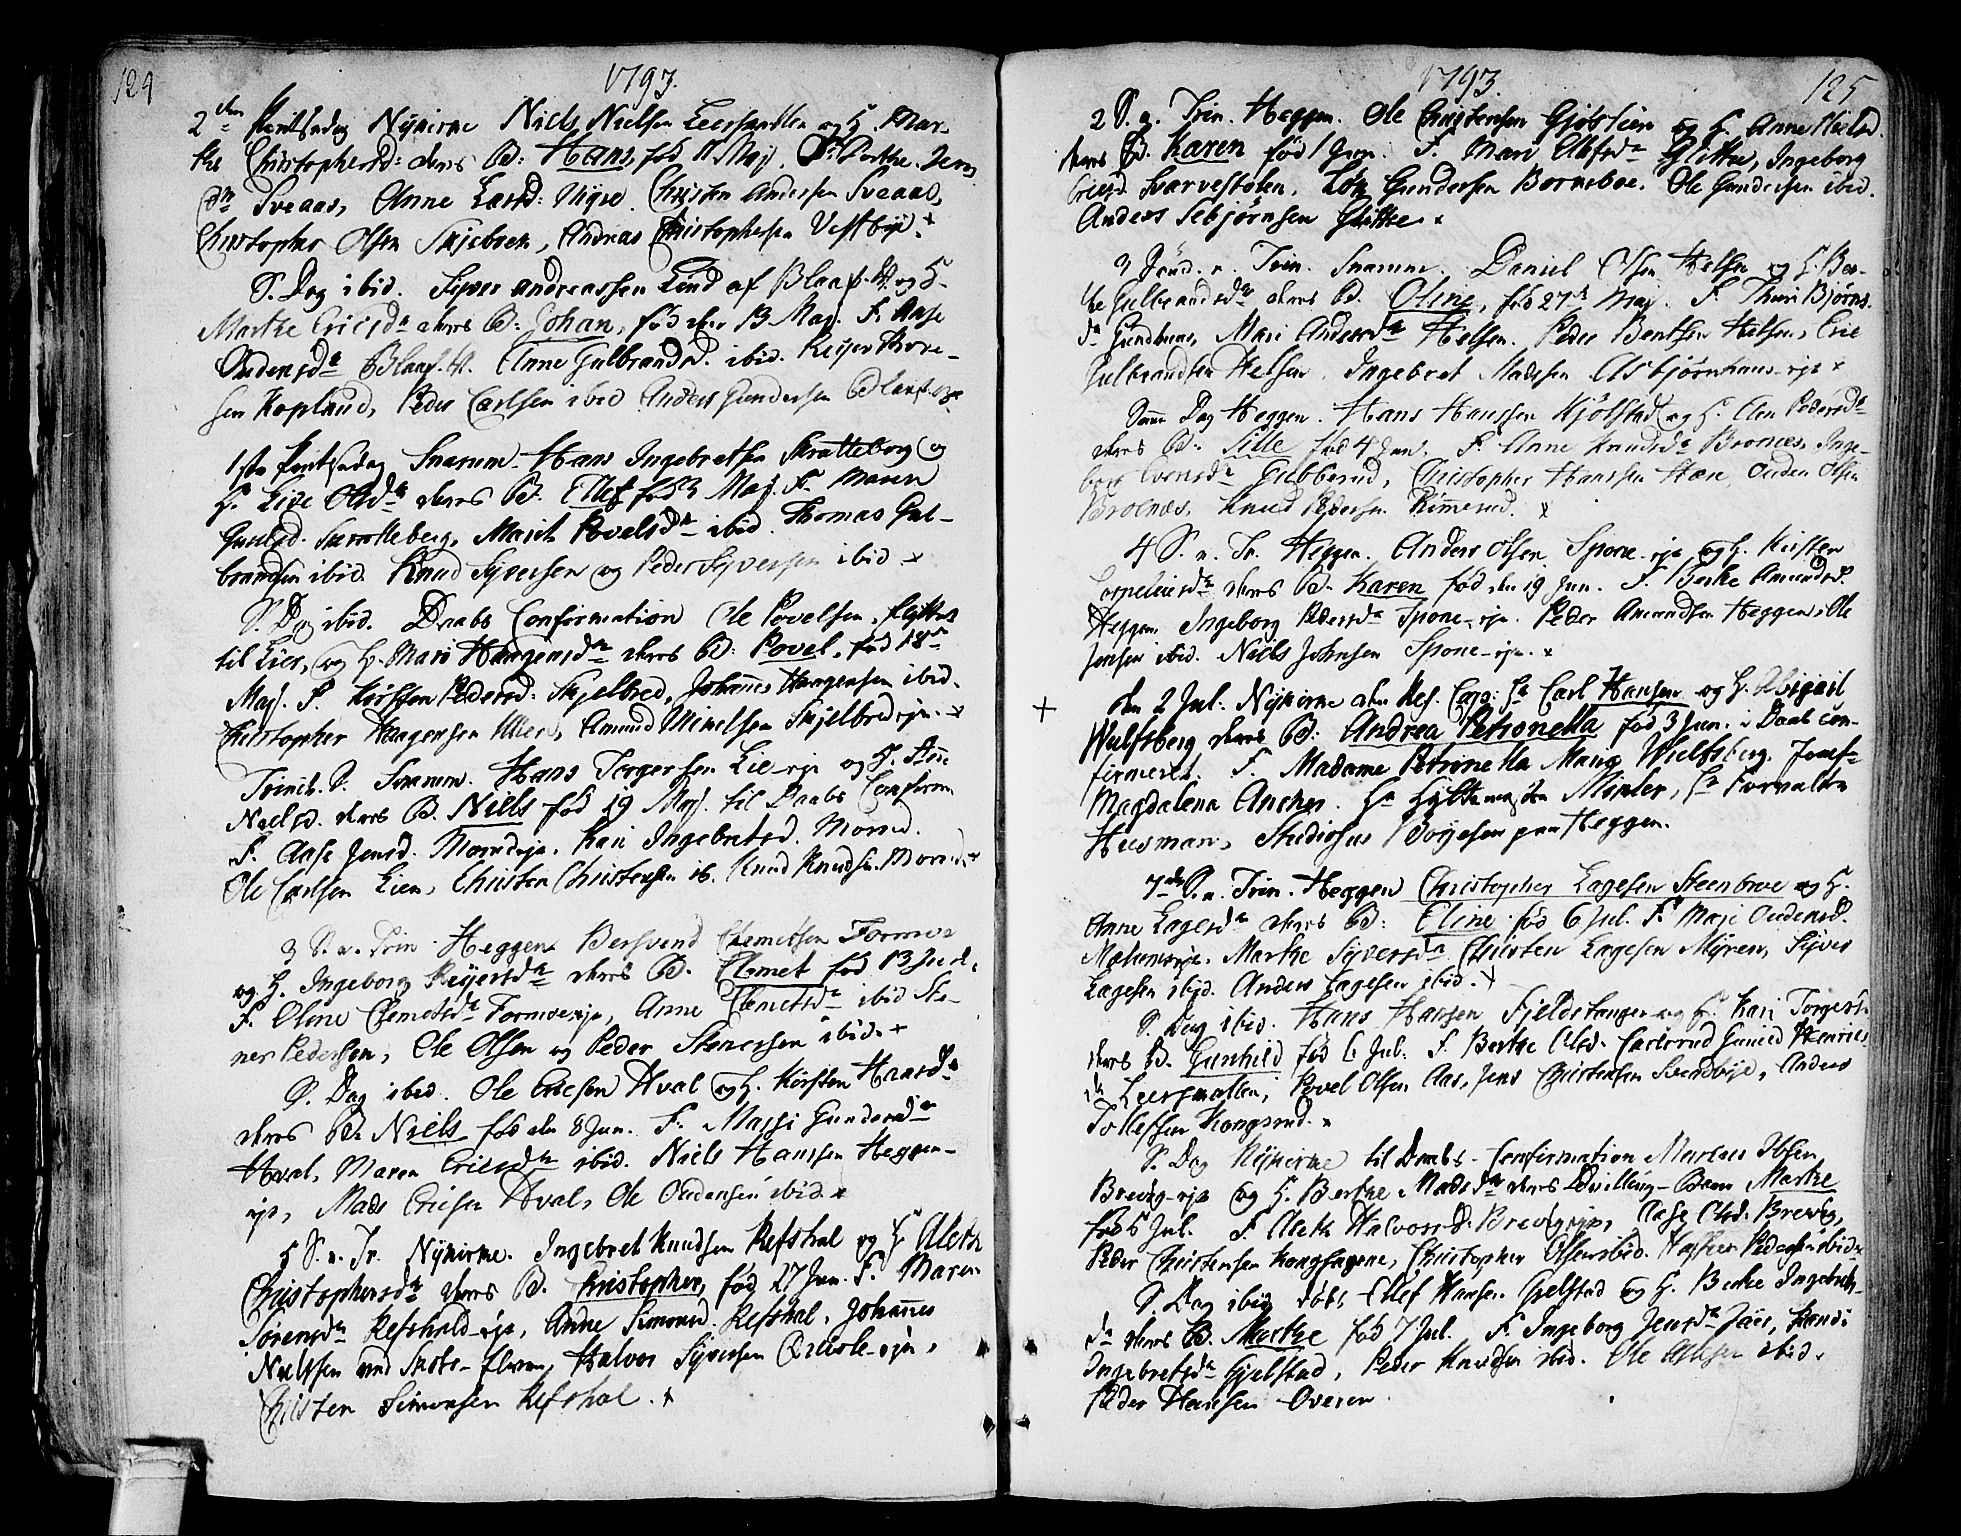 124
1793.
2den Pentsedag Nykirke Niels Nielsen Leersmatten og H. Mar-
the Christophersd: deres B: Hans, fød 11 Maj. F. Berthe Jens
dr Sveaas, Anne Larsd: Christen Andersen Sveaas,
Christopher Olsen Skjebren, Andreas Christophersen Vestbye. x
S. Dag ibid. Syver Andreassen Lind af Blaaf. V. og H.
Marthe Ericsdr deres B: Johan, fød den 13 Maj. F. Aase
Oudensdr Blaaf. V. Anne Gulbrandsd. ibid. Reyer Thore-
sen Kopland, Peder Carlsen ibid Anders Gundersen Blaaf.
1ste Pentsedag Snarum. Hans Ingebretsen Skratteborg og
H. Live Olsdr deres B. Ellef fød 3 Maj. F. Maren
Skratteberg, Marit Povelsdr ibid. Thomas Gul-
brandsen ibid. Knud Syversen og Peder Syversen ibid x
S. Dag ibid. Daabs Confirmation Ole Povelsen, flyttet
til Lier, og H. Mari Haagensdr deres B: Povel, fød 18de
Maj. F. Kirsten Pedersd: Skjelbred, Johannes Haagensen ibid.
Christopher Haagensen Amund Mikelsen Skjelbred eje. x
Trinit. S. Snarum. Hans Torgersen Lie eje og H. Anne
Nielsd. deres B. Niels fød 19 Maj. til Daabs Conferm
F. Aase Jensd. Moend eje. Kari Ingebretsd. Moend.
Ole Carlsen Lien, Christen Christensen ib. Knud Knudsen Moend. x
3 S. n. Trin. Heggen Bersvend Clemetsen Formoe
og H. Ingeborg Reyersdr deres B. Clemet fød 13 Juni.
F. Oline Clemetsdr Formoe eje, Anne Clemetsdr ibid Ste-
ner Pedersen, Ole Olsen og Peder Stenersen ibid. x
S. Dag ibid. Ole Ericsen Hval og H. Kirsten Hansdr
deres B. Niels fød den 8 Jun. F. Massi Gundersdr
Hval, Maren Ericsdr ibid. Niels Hansen Heggen-
eje, Mads Ericsen Hval, Ole Oudensen ibid. x
5 S. n. Tr. Nykirke. Ingebret Knudsen Refshal og H. Aleth
Christophersdr deres B. Christopher, fød 27 Jun. F. Maren
Sørensdr Refshald eje, Anne Simonsd. Refshal, Johannes
Nielsen ved Halvor Syversen
Christen Simonsen Refshal. x
1793.
125
2 S. n. Trin. Heggen. Ole Christensen Gjøslien og H. Anne Nielsd.
deres B. Karen fød 1 Jun. F. Mari Olafsdr Glitre, Ingeborg
Ericsd. Svarvestølen. Gundersen Borneboe. Ole Gundersen ibid.
Anders Sebjørnsen Glitre x
3 Sønd. n. Trin. Snarum. Daniel Olsen Helsen og H. Ber-
the Gulbrandsdr deres B. Oline, fød 27de Maj. F. Thuri Bjørns
dr Mari Andersdr Helsen. Peder Bentsen Helsen, Eric
Gulbrandsen Helsen. Ingebret Madsen Asbjørnhaus eje x
Samme Dag Heggen. Hans Hanssen Kjølstad og H. Elen Pedersdr
deres B. Sille fød 4 Jun. F. Anne Knudsdr Broenæs, Inge-
borg Gubberud, Christopher Hanssen Hære Ouden Olsen
Broenæs, Knud Pedersen Rimerud. x
4 S. n. Tr. Heggen. Anders Olsen Spone eje og H. Kirsten
Corneliusdr deres B. Karen fød den 19 Jun. F. Berthe Amundsd.
Heggen, Ingeborg Pedersdr Spone eje. Peder Amundsen Heggen, Ole
Jensen ibid. Niels Johnsen Spone-eje. x
+ den 2 Jul. Nykirke den Res. Cap: Hr Carl Hansen og H. Abigail
Wulfsberg deres B: Andrea Petronella fød 3 Jun. i Daab con-
firmeret. F. Madame Petronella Marig Wulfsberg. Jomfr
Magdalena Ancher. Hr Hyttemester Minler, Hr Forvalter
Heesman, Studiosus Borgesen paa Heggen.
7de S. n. Trin. Heggen Christopher Lagesen Steenbroe og H.
Anne Lagesdr deres B: Eline fød 6 Jul. F. Mari Oudensd.
Marthe Syversdr Christen Lagesen Myren, Syver
Lagesen ibid. Anders Lagesen ibid. x
S. Dag ibid. Hans Hansen Fjeldstangen og H. Kari Torgersd
deres B. Gunhild fød 6 Jul: F. Berthe Olsd. Carlsrud Gunild Henrics
dr Leersmatten, Povel Olsen Aas, Jens Christensen Svendbye, Anders
Tollefsen Kongsrud. x
S. Dag Nykirke til Daabs-Confirmation Morten Ibsen
Brevig eje og H. Berthe Madsdr deres Tvilling-Barn Marthe
fød 5 Jul. F. Aleth Halvorsd: Brevig eje, Aase Olsd: Brevig,
Peder Christensen Kongshagene, Christopher Olsen ibid. Peders. ibid. x
S. Dag ibid. døbt Ellef Hansen Gjelstad og H. Berthe Ingebrets-
dr deres B. Marthe fød 7 Jul. F. Ingeborg Jensdr Kandi
Ingebretsdr Gjelstad, Peder Knudsen ibid. Ole ibid.
Peder Hansen Overen